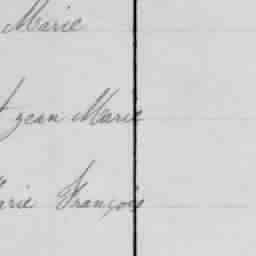 Marie
jean Marie
arie François